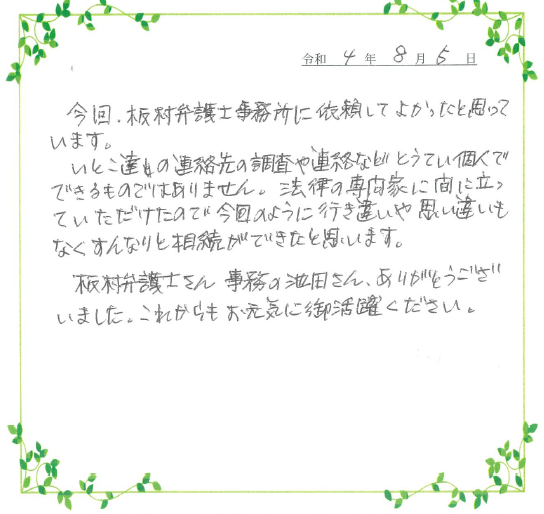 令和 4 年 8 月 5 日
今回、板村弁護士事務所に依頼してよかったと思って
います。
いとこ達の連絡先の調査や連絡などとうてい個人で
できるものではありません。法律の専門家に間に立っ
ていただけたので今回のように行き違いや思い違いも
なくすんなりと相続ができたと思います。
板村弁護士さん 事務の池田さん、ありがとうござ
いました。これからもお元気に御活躍ください。